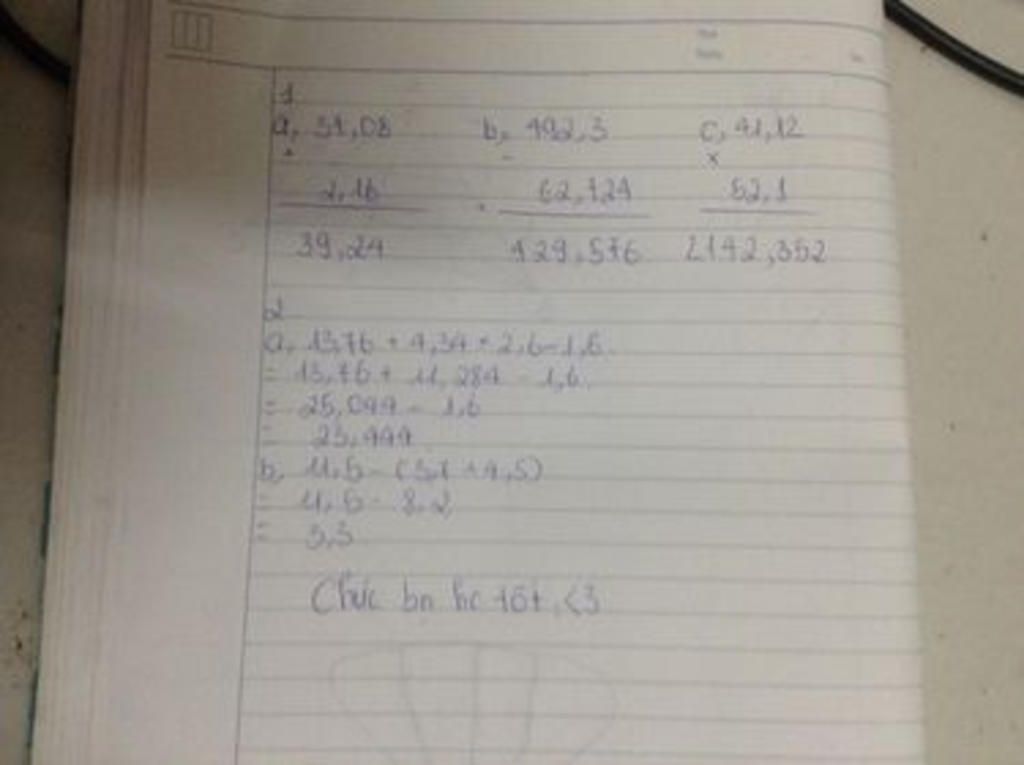 1
a, 37,08 b, 492,3 c, 41,12
+ - x
2,16 62,724 52,1
39,24 429,576 2142,352
2
a, 13,76 + 4,34 * 2,6 - 1,6
= 13,76 + 11,284 - 1,6
= 25,044 - 1,6
= 23,444
b, 11,5 - (3,7 + 4,5)
= 11,5 - 8,2
= 3,3
Chúc bn hc tốt, <3